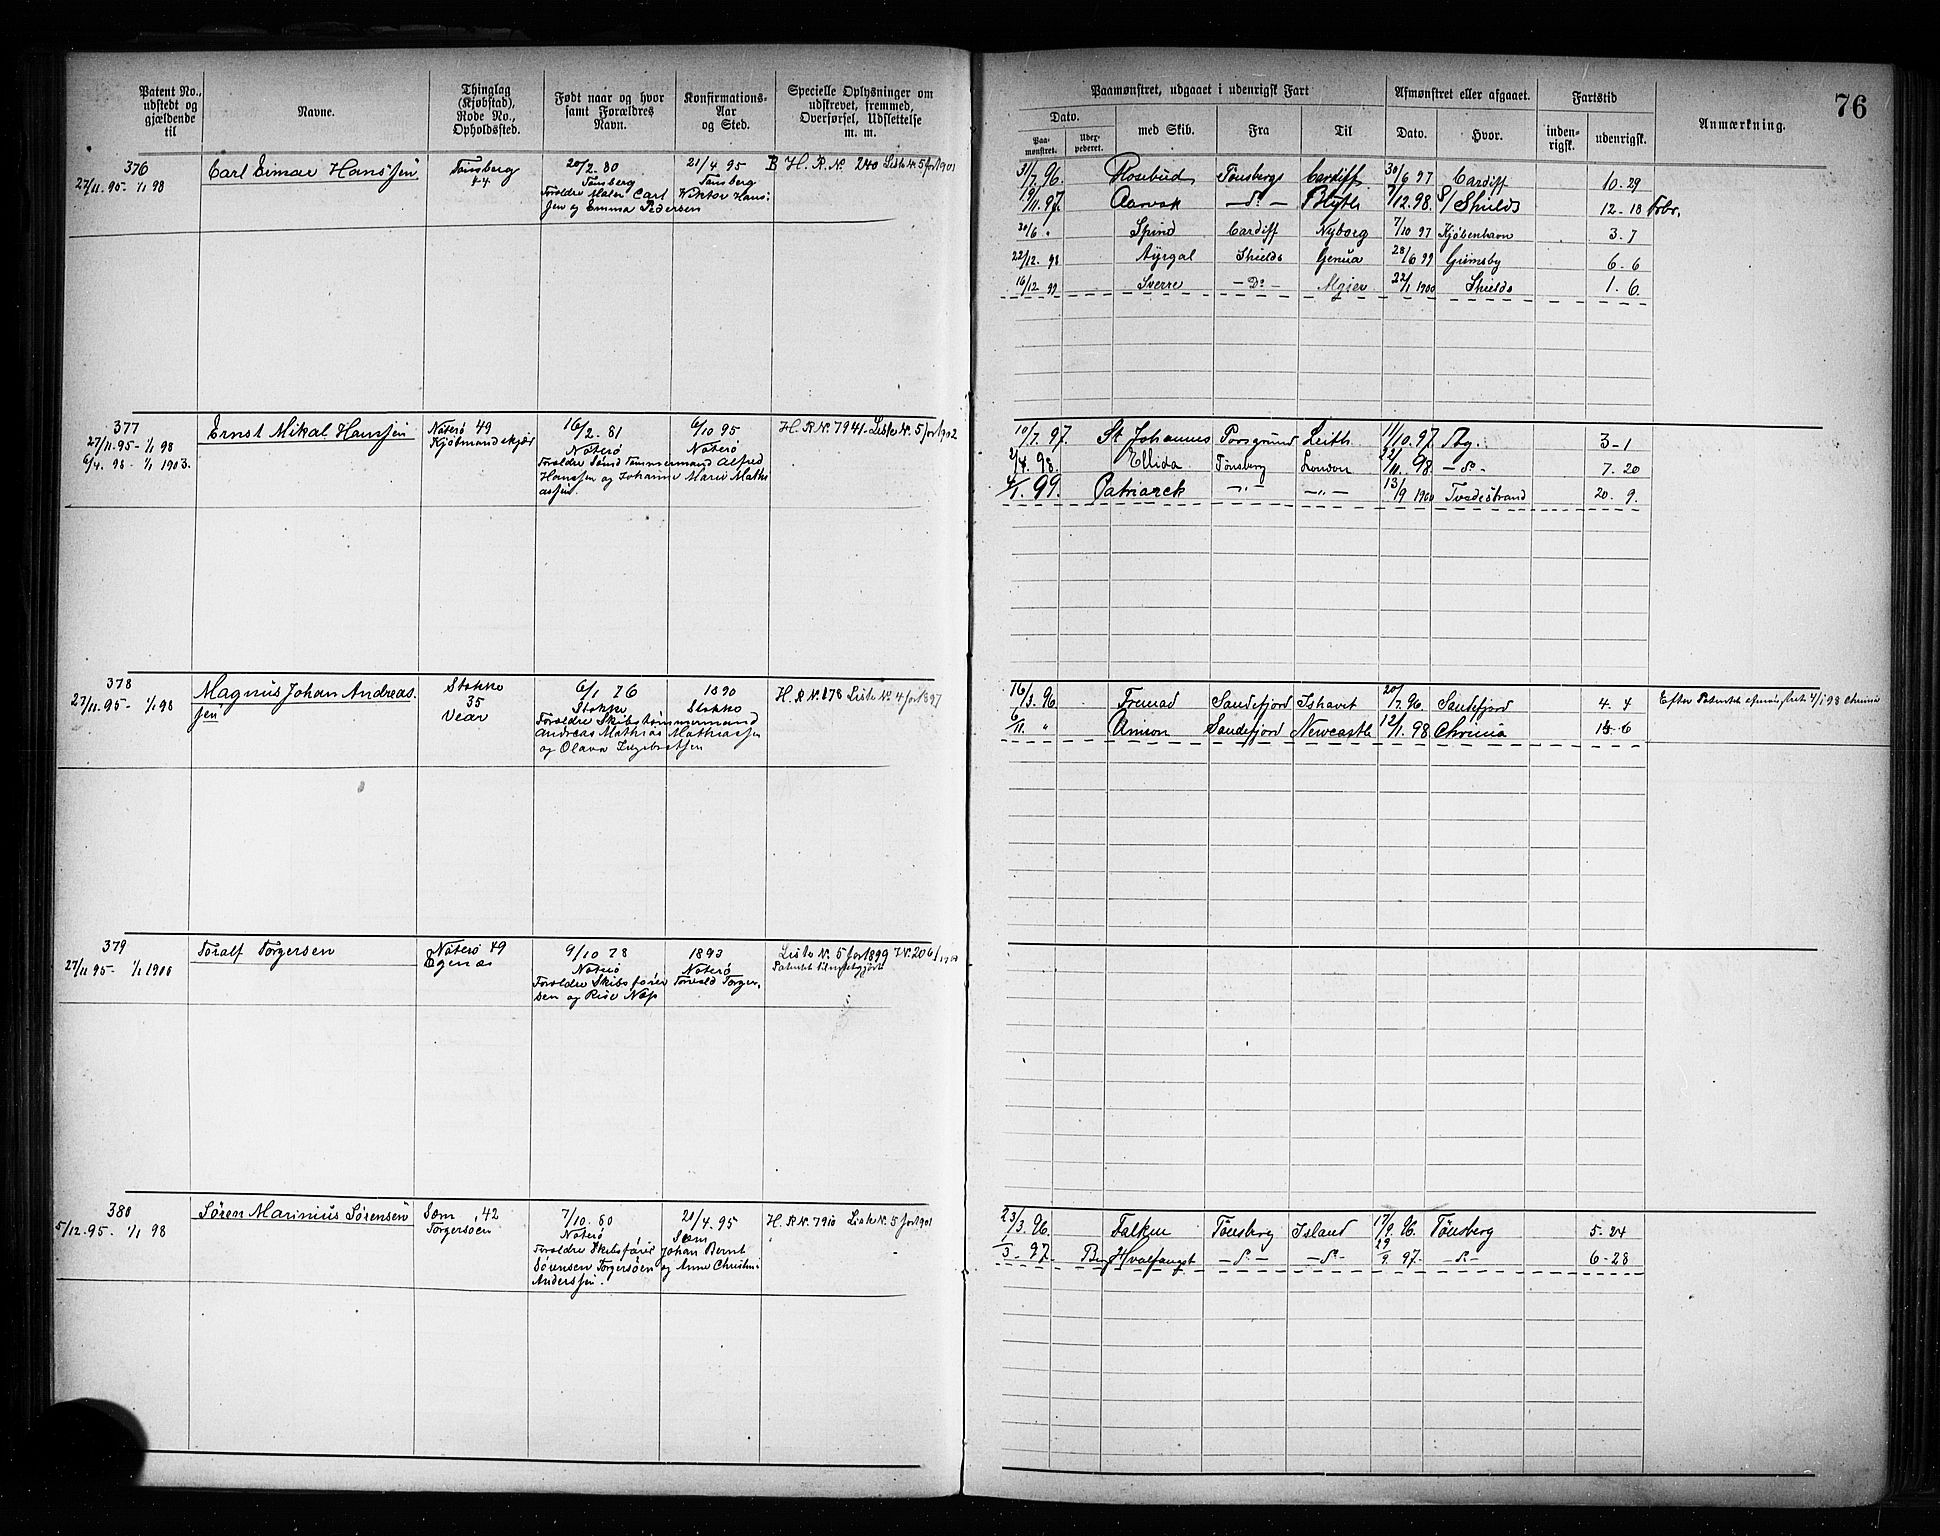 76
Patent No.,
udstedt og
gjældende
til
Navne.
Thinglag
(Kjøbstad),
Rode No.,
Opholdssted.
Født naar og hvor
samt Forældres
Navn.
Konfirmations-
Aar
og Sted.
Specielle Oplysninger om
udskrevet, fremmed,
Overførsel, Udslettelse
m. m.
Paamønstret, udgaaet i udenrigsk Fart
Dato.
Paa-
mønstret.
med Skib.
Fra
Til
Afmønstret eller afgaaet.
Dato.
Hvor.
Fartstid
inden-
rigsk.
udenrigsk.
Anmærkning.
376
27/11.95- 1/1 98
Carl Eimar Hanssen
Tønsberg
20/2.80
Tønsberg
Forældre Maler Carl Viktor Hans-
sen og Emma Pedersen
21/4 95
Tønsberg
B H.R.N. 240 Liste N. 5 for 1901
31/7.96. Rosebud Tønsberg Cardiff 30/6 97 Cardiff 10.29
19/11.97. Aarvak -Do- Blyth 7/12.98. S/Shields 12-18
30/6 " Spind Cardiff Nyborg 7/10 97 Kjøbenhavn 3.7
22/12.98 Shields Genua 28/6 99 Grimsby 6.6
16/12.99 Sverre -Do- Algier 22/1 1900 Shields 1.6.
377
27/11.95- 1/1 98
6/4.98- 1/1 1903.
Ernst Mikal Hanssen
Nøterø 49
Kjøbmandskjær
16/2.81
Nøterø
Forældre Tømmermand Alfred
Hanssen og Johanne Marie Mathi
assen.
6/10 95
Nøterø
H.R.N. 7941. Liste N. 5 for 1902
10/7.97. St Johannes Porsgrund Leith 11/10.97 3-1
2/4.98. Ellida Tønsberg London 22/11.98. -Do- 7.20
4/1.99. Patriarck -"- -"- 13/9 1900 Tvedestrand 20.9.
378
27/11.95- 1/1 98
Magnus Johan Andreas-
sen
Stokke
35
Vear
6/1 76
Stokke
Forældre Skibstømmermand
Andreas Mathias Mathiassen
og Olava Ingebretsen
1890
Stokke
H.R.N. 178 Liste N. 4 for 1897
16/3.96. Fremad Sandefjord Ishavet 20/7.96. Sandefjord 4.4
6/11. " Sandefjord Newcastle 12/1.98 Chrania 6
379
27/11 95- 1/1 1900
Toralf Torgersen
Nøterø 49
Egenæs
9/10 78
Nøterø
Forældre Skibsfører Torvald Torger-
sen og
1893
Nøterø
Liste N. 5 for 1899
380
5/12.95- 1/1 98
Søren Marinius Sørensen
Sæm 42
Torgersøen
7/10.80
Nøterø
Forældre Skibsfører Johan Bernt
Sørensen Torgersøen og Anne Christine
Anderssen.
21/4.95
Sæm
H.R.N. 7910 Liste N. 5 for 1901
23/3.96. Falken Tønsberg Island 17/9.96. Tønsberg 5.24
97. Hvalfangst -Do- -Do- 29/9. 97. -Do- 6-28